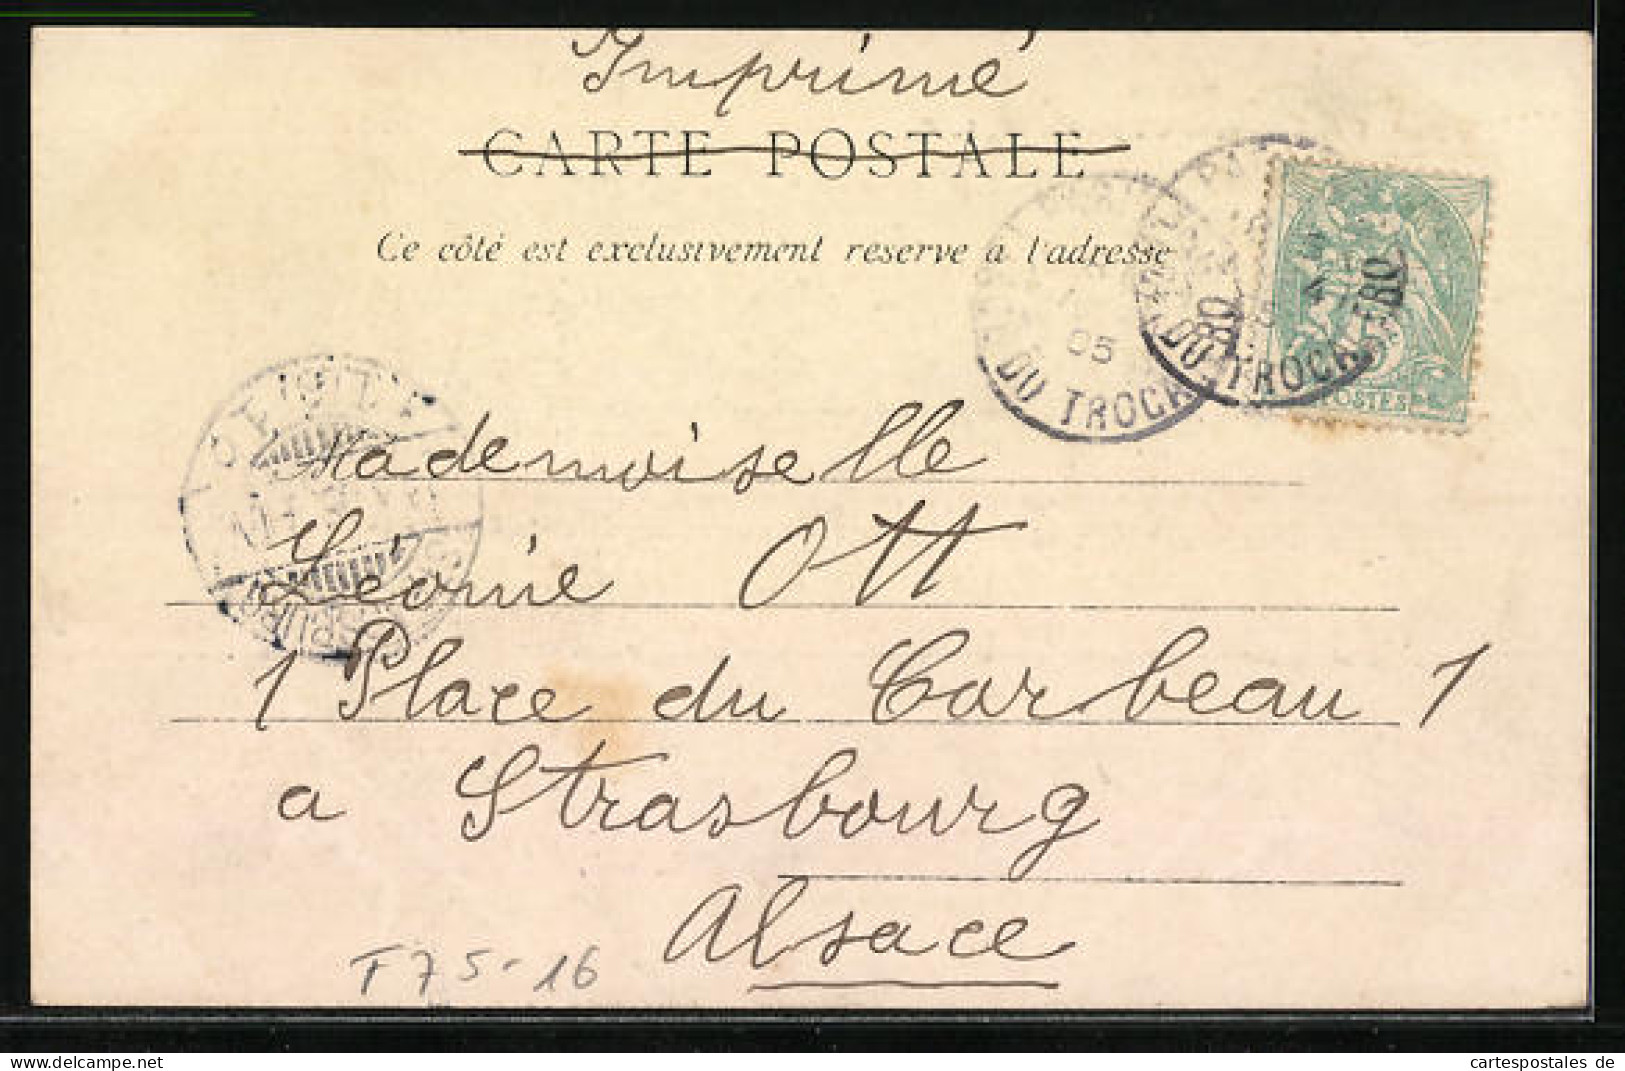 Imprimé
CARTE POSTALE
Ce côté est exclusivement reserve a l'adresse
05
DU TROCA
DU TROCADERO
POSTES
Mademoiselle
Léonie Ott
1 Place du Corbeau 1
a Strasbourg
Alsace
T 75-16
cartespostales de